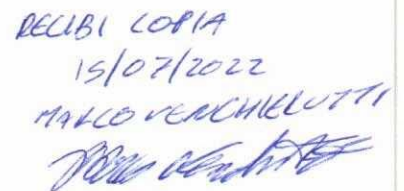 RECIBI COPIA
15/07/2022
MARCO VENCHIERUTTI